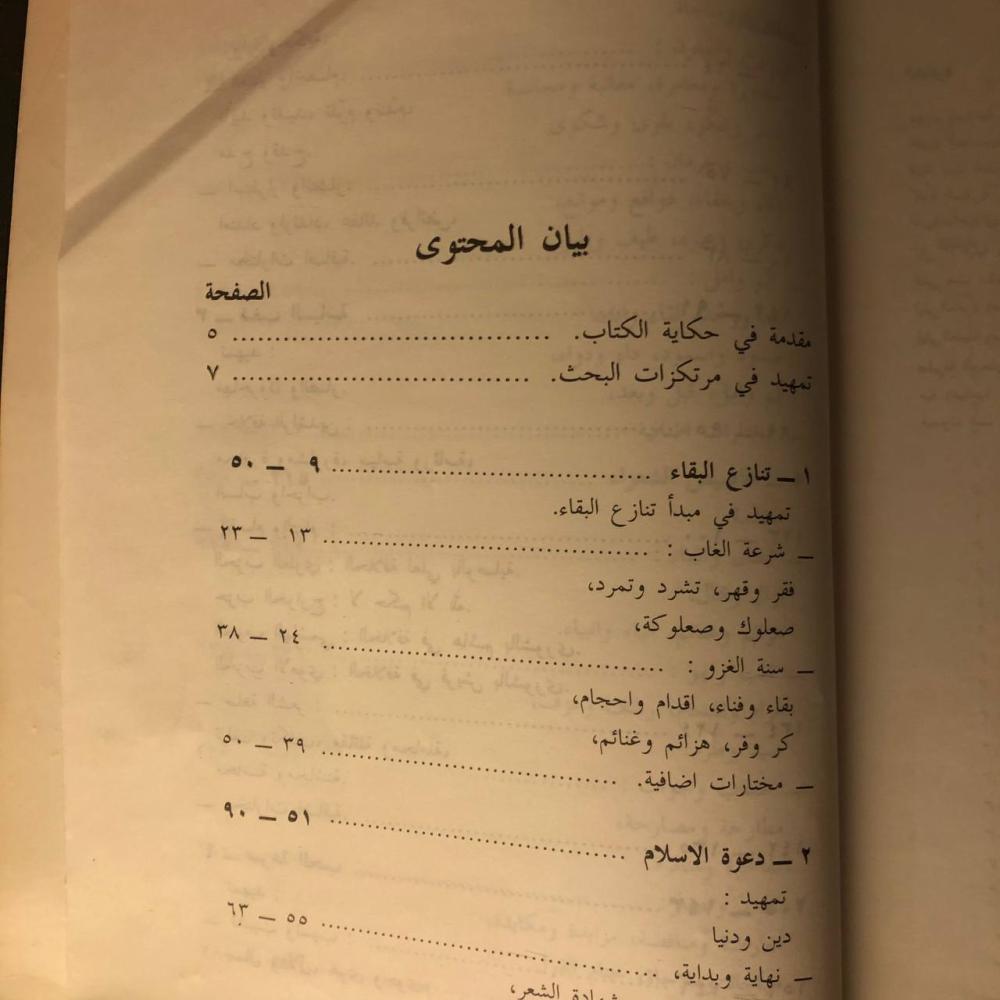 بيان المحتوى
الصفحة
مقدمة في حكاية الكتاب. ................................... ٥
تمهيد في مرتكزات البحث. ................................. ٧
١ ــ تنازع البقاء ................................... ٩ ــ ٥٠
تمهيد في مبدأ تنازع البقاء.
ــ شرعة الغاب : ................................... ١٣ ــ ٢٣
فقر وقهر، تشرد وتمرد،
صعلوك وصعلوكة،
ــ سنة الغزو : ................................... ٢٤ ــ ٣٨
بقاء وفناء، اقدام واحجام،
كر وفر، هزائم وغنائم،
ــ مختارات اضافية. ................................ ٣٩ ــ ٥٠
٢ ــ دعوة الاسلام ................................ ٥١ ــ ٩٠
تمهيد :
دين ودنيا
ــ نهاية وبداية، ................................... ٥٥ ــ ٦٣
شهادة الشعر،